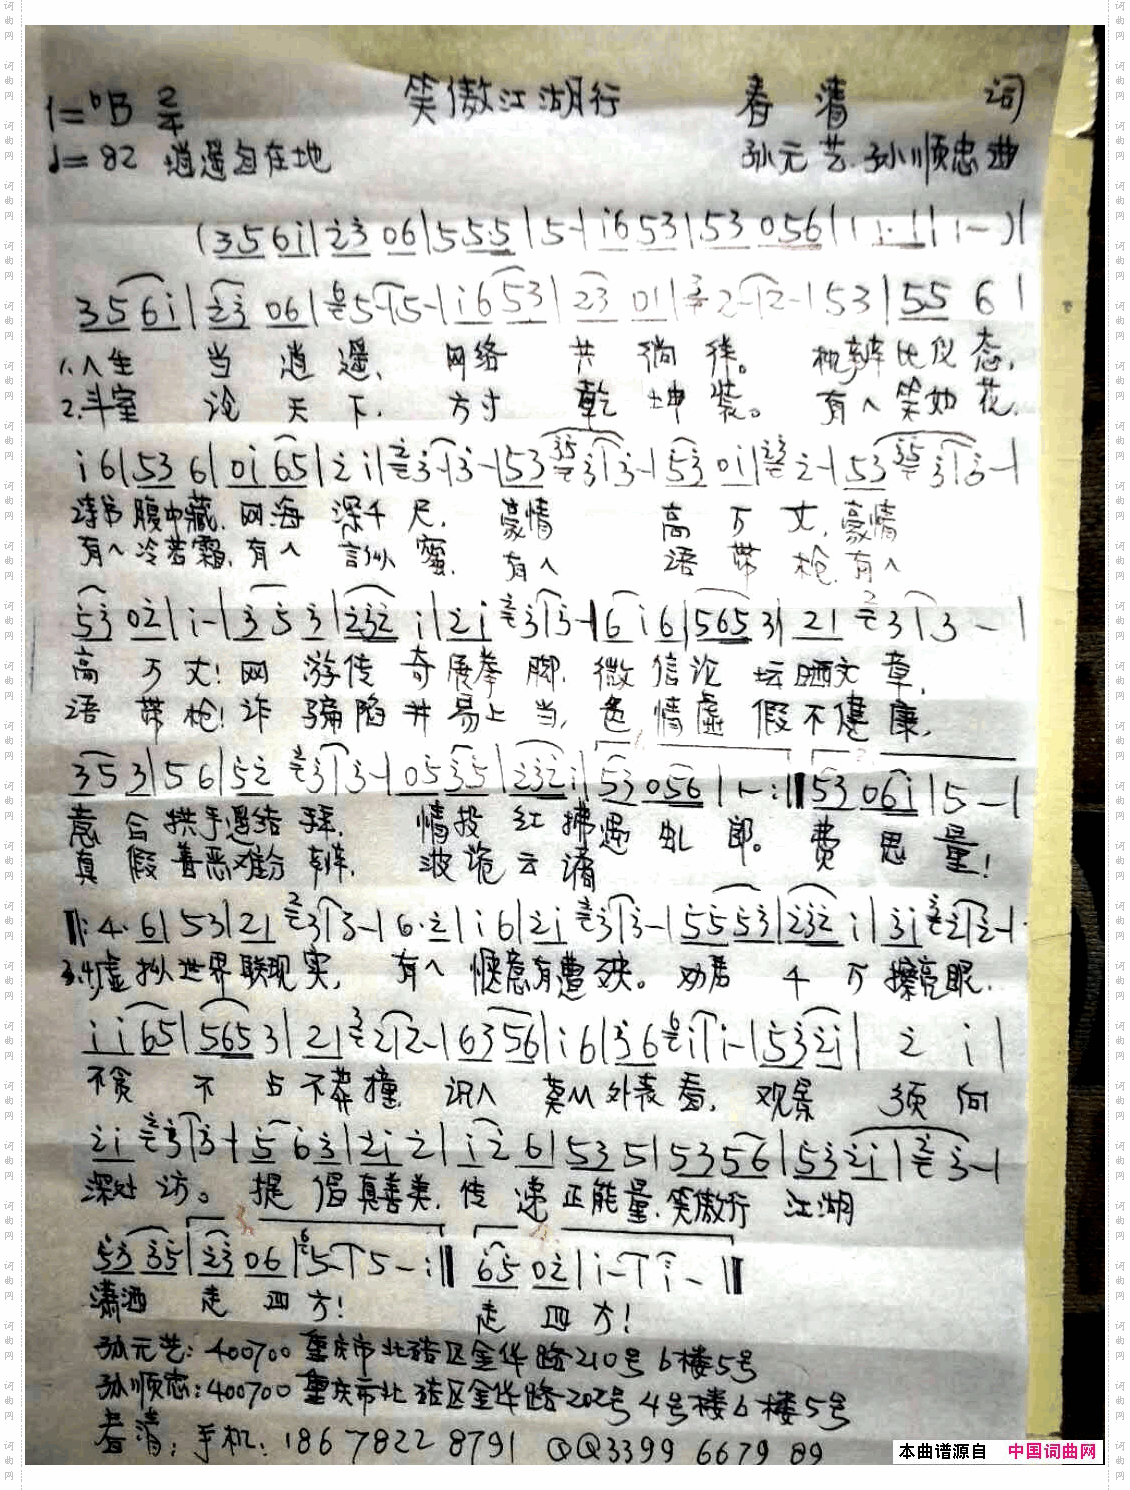 笑傲江湖行 春清 词
1=ᵇB 2/4
♩=82 逍遥自在地 孙元艺、孙顺忠曲
(3 5 6 i | 2 3 0 6 | 5 5 5 | 5 - | i 6 5 3 | 5 3 0 5 6 | 1 1· 1 | 1 - ) |
3 5 6 i | 2 3 0 6 | 5 - | 5 - | i 6 5 3 | 2 3 0 1 | 2 - | 2 - | 5 3 | 5 5 6 |
1.人生 当 逍遥、 网络 共 徜徉。 机辨比仪态,
2.斗室 论天下, 方寸 乾坤装。 有人笑如花,
i 6 | 5 3 6 | 0 i 6 5 | 2 i | 3 - | 3 - | 5 3 3 | 3 - | 5 3 0 i | 2 - | 5 3 3 | 3 - |
诗书腹中藏, 网海 深千尺, 豪情 高万丈, 豪情
有人冷若霜, 有人 言似蜜, 有人 语带枪, 有人
5 3 0 2 | i - | 3 5 3 | 2 3 2 i | 2 i 3 | 3 - | 6 i 6 | 5 6 5 3 | 2 1 3 | 3 - |
高万丈! 网游传奇展拳脚, 微信论坛晒文章,
语带枪! 诈骗陷井易上当, 色情虚假不健康,
3 5 3 | 5 6 | 5 2 3 | 3 - | 0 5 3 5 | 2 3 2 i | 5 3 0 5 6 | 1 - :‖ 5 3 0 6 i | 5 - |
意合拱手遥结拜, 情投红拂遇虬郎。 费思量!
真假善恶难分辨, 波诡云谲
‖: 4· 6 | 5 3 | 2 1 3 | 3 - | 6· 2 | i 6 | 2 i 3 | 3 - | 5 5 5 3 | 2 3 2 i | 3 i 2 | 2 - |
3.4.虚拟世界联现实, 有人惬意有遭殃。 劝君千万擦亮眼,
i i 6 5 | 5 6 5 3 | 2 1 2 | 2 - | 6 3 5 6 | i 6 | 3 6 i | i - | 5 3 2 i | 2 i |
不贪不占不莽撞, 识人莫从外表看, 观景须向
2 i 3 | 3 - | 5 6 3 | 2 i 2 | i 2 6 | 5 3 5 | 5 3 5 6 | 5 3 2 i | 3 - |
深处访。 提倡真善美, 传递正能量, 笑傲行江湖
5 3 3 5 | 2 3 0 6 | 5 - | 5 - :‖ 6 5 0 2 | i - | i - ‖
潇洒走四方! 走四方!
孙元艺: 400700 重庆市北碚区金华路210号6楼5号
孙顺忠: 400700 重庆市北碚区金华路202号4号楼6楼5号
春清: 手机: 18678228791 QQ339966 7989
本曲谱源自 中国词曲网